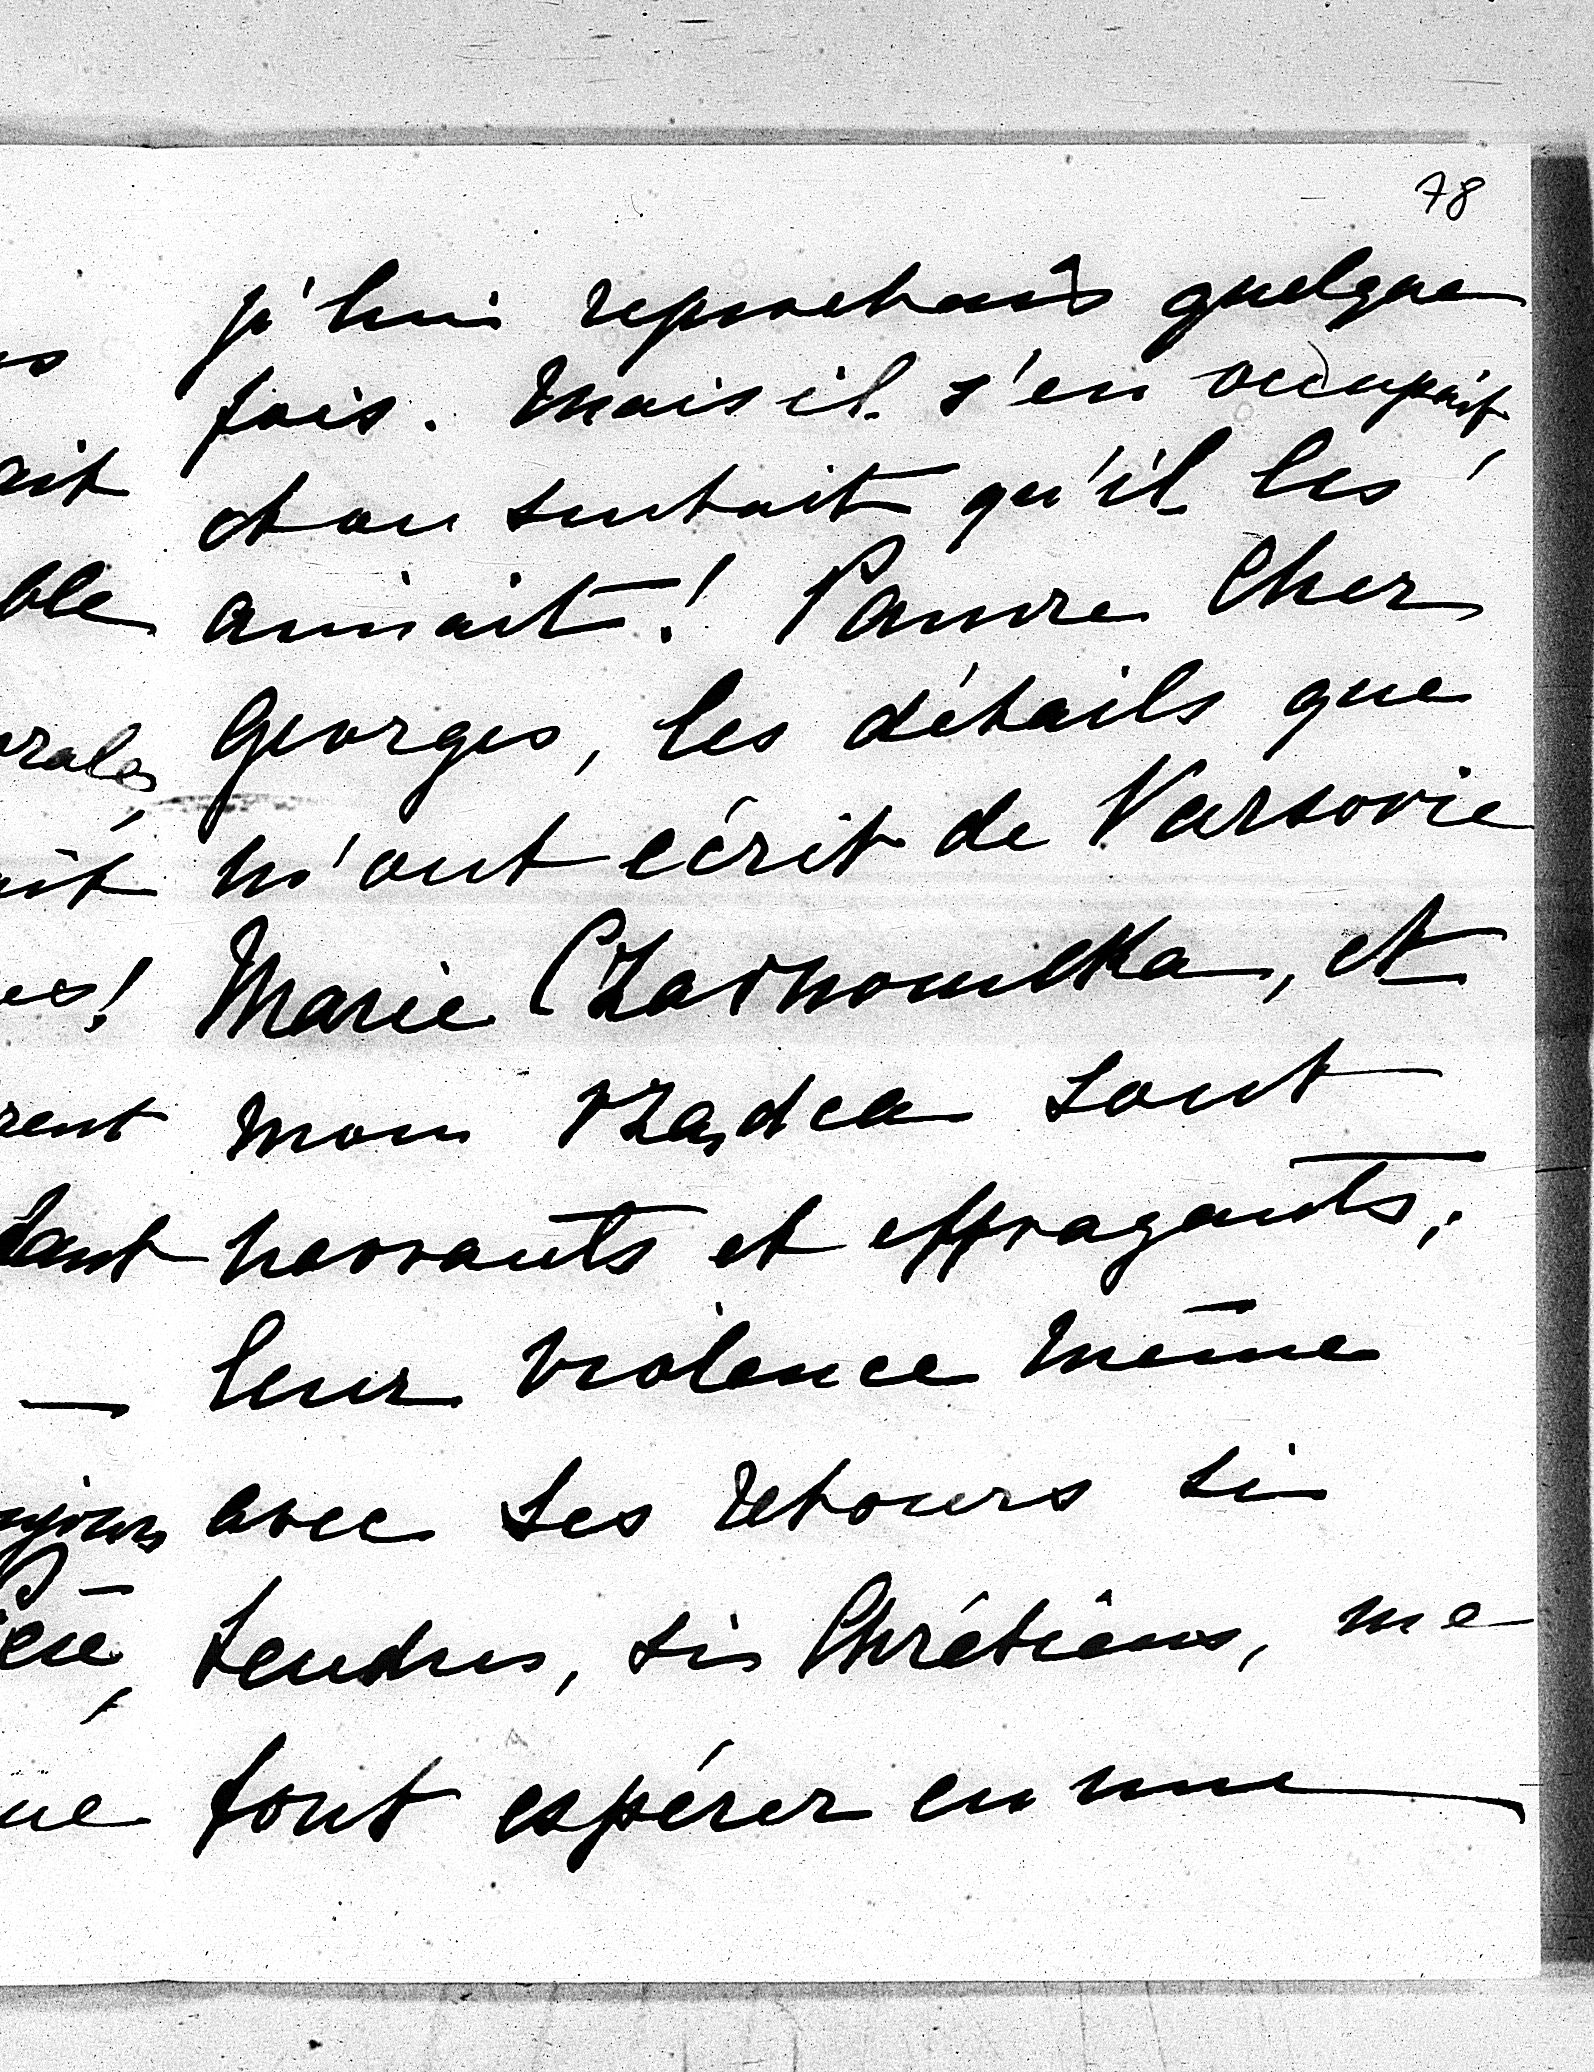 78
j' lui reprochais quelque
fois. Mais il s'en occupait,
et on sentait qu'il les
aimait! Pauvre Cher
Georges, les détails que
m'ont écrit de Varsovie
Marie Czarnomska, et
mon rządca sont
navrants et effrayants;
leur violence même
avec ses retours si
tendres, si Chrétiens, me
font espérer en une
ait
ble
orales,
ait
es!
rent
dant
—
oujours
ue